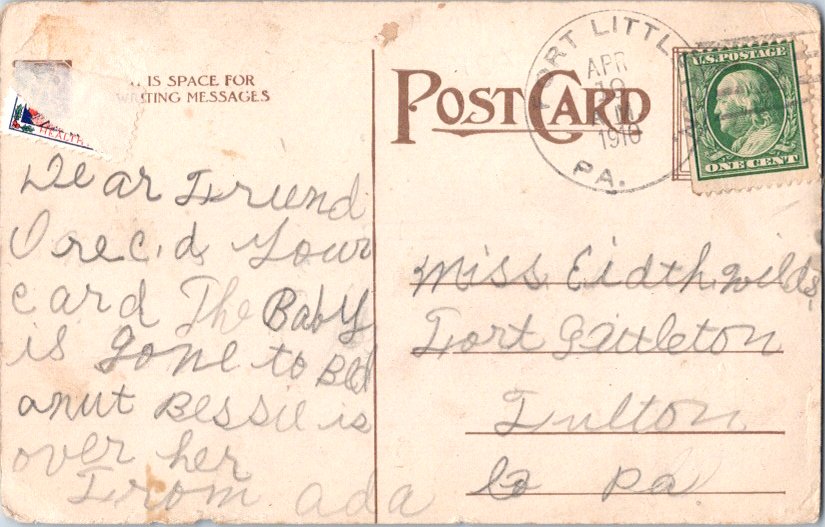 IS SPACE FOR
WRITING MESSAGES
HEALTH
Dear Friend
I rec,d Your
card The Baby
is gone to Bed
anut Bessie is
over her
From ada
POST CARD
FORT LITTL
APR
1910
PA.
U.S. POSTAGE
ONE CENT
Miss Eidth wilds,
Fort Littleton
Fulton
Co Pa